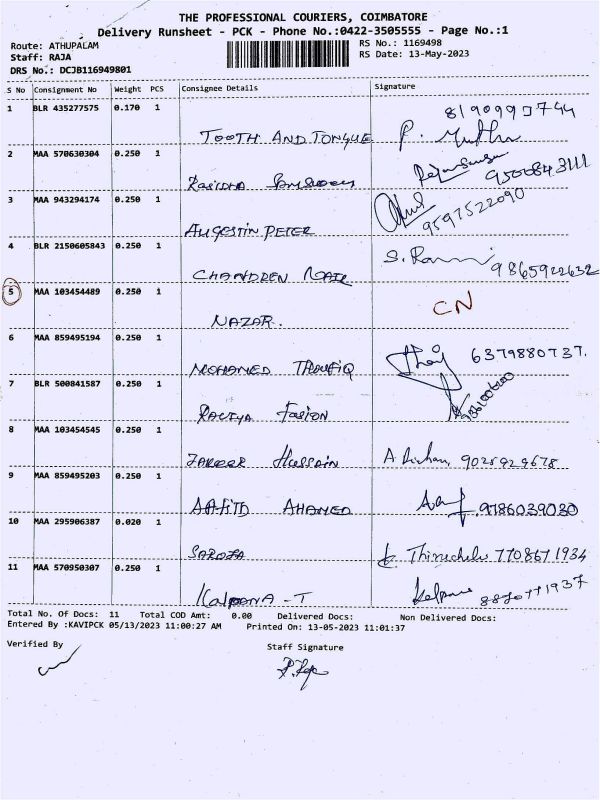 THE PROFESSIONAL COURIERS, COIMBATORE
Delivery Runsheet - PCK - Phone No.:0422-3505555 - Page No.:1
Route: ATHUPALAM
RS No.: 1169498
Staff: RAJA
RS Date: 13-May-2023
DRS No.: DCJB116949801
S No Consignment No Weight PCS Consignee Details Signature
1 BLR 435277575 0.170 1
8190993744
TOOTH AND TONGUE P. Muthu
2 MAA 570630304 0.250 1
3 MAA 943294174 0.250 1
9597522090
AUGESTIN PETER
4 BLR 2150605843 0.250 1
CHANDREN NAIR 9865922632
5 MAA 103454489 0.250 1
CN
NAZAR.
6 MAA 859495194 0.250 1
6379880737.
MOHAMED THOUFIQ
7 BLR 500841587 0.250 1
8 MAA 103454545 0.250 1
ZAKEER HUSSAIN 9025929678
9 MAA 859495203 0.250 1
AHAMED 9786039030
10 MAA 295906387 0.020 1
SAROJA 7708671934
11 MAA 570950307 0.250 1
KALPANA - T Kalpana
Total No. Of Docs: 11 Total COD Amt: 0.00 Delivered Docs: Non Delivered Docs:
Entered By :KAVIPCK 05/13/2023 11:00:27 AM Printed On: 13-05-2023 11:01:37
Verified By
Staff Signature